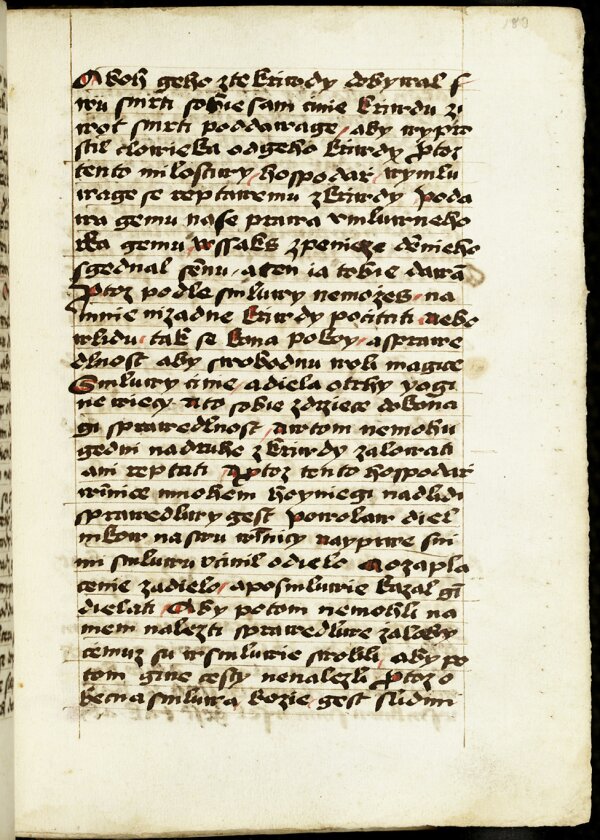 180
A koho geho zte krziwdy dobywal s
wu smrti sobie sam cinie krziwdu zi
wot smrti poddawage, aby wypro
stil clowieka odgeho krziwdy Ptoz
tento milostiwy hospodarz wymlu
wage se reptawemu zkrziwdy poda
wa gemu nasse prawa vmluwneho
rzka gemu wssaks zpenieze denieho
sgednal semnu, aten ia tobie dawam
Ptoz podle smluwy nemozes, na
mnie nizadne krziwdy pocitati nebo
wlidu, tak se kona pokoy, asprawe
dlnost aby swobodnu woli magice
Smluwy cinie, adiela otrhy yagi
ne wiecy Ato sobie zdrziece dokona
gi sprawedlnost, awtom nemohu
gedni nadruhe zkrziwdy zalowati
ani reptati Aptoz tento hospodarz
winnice mnohem hoyniegi nadlidi
sprawedliwy gest Powolaw diel
nikow naswu winnicy naypwe sni
mi smluwu vcinil odielo Aozapla
cenie zadielo, aposmluwie kazal gim
dielati Aby potom nemohli na
niem nalezti sprawedliwe zaloby
cemuz su wsmluwie swolili, aby po
tom gine cesty nenalezli Ptoz o
becna smluwa, bozie gest slidmi